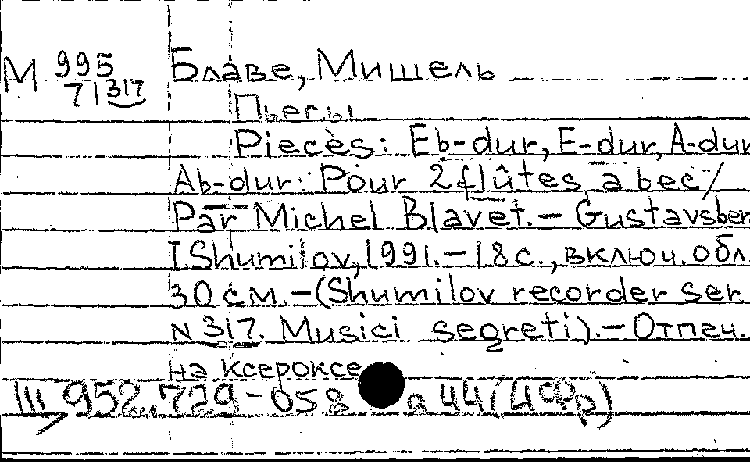 М 995 Блаве, Мишель
71317
Пьесы
Pièces: Eb-dur, E-dur, A-dur
Ab-dur: Pour 2 flûtes à bec /
Par Michel Blavet. – Gustavsber
I. Shumilov, 1991. – 18 с., включ. обл.
30 см. – (Shumilov recorder ser.
N 317. Musici segreti). – Отпеч.
на ксероксе
Ш 952. 729-058 а 44(4Фр)